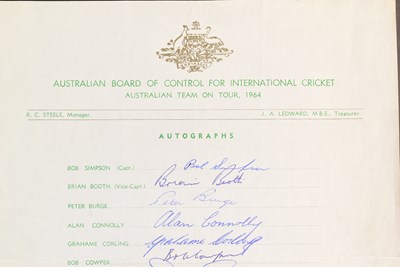 AUSTRALIAN BOARD OF CONTROL FOR INTERNATIONAL CRICKET
AUSTRALIAN TEAM ON TOUR, 1964
R. C. STEELE, Manager. J. A. LEDWARD, M.B.E., Treasurer.
AUTOGRAPHS
BOB SIMPSON (Capt.) Bob Simpson
BRIAN BOOTH (Vice-Capt.) Brian Booth
PETER BURGE Peter Burge
ALAN CONNOLLY Alan Connolly
GRAHAME CORLING Grahame Corling
BOB COWPER Bob Cowper